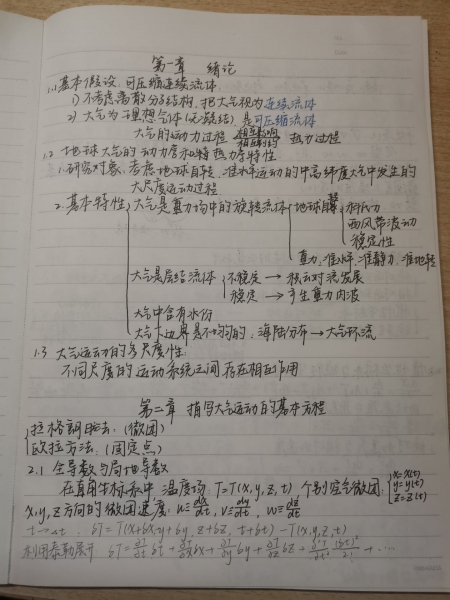 第一章 绪论
1.1 基本假设:可压缩连续流体
1) 不考虑离散分子结构,把大气视为连续流体
2) 大气为理想气体(无凝结)是可压缩流体
大气的动力过程 相互影响 相互制约 热力过程
1.2 地球大气的动力学和热力学特性
1. 研究对象:考虑地球自转、准水平运动的中高纬度大气中发生的
大尺度运动过程
2. 基本特性 大气是重力场中的旋转流体 地球自转 科氏力
西风带波动
稳定性
重力:准水平、准静力、准地转
大气是层结流体 不稳定→积云对流发展
稳定→产生重力内波
大气中含有水份
大气下边界是不均匀的:海陆分布→大气环流
1.3 大气运动的多尺度性:
不同尺度的运动系统之间存在相互作用
第二章 描写大气运动的基本方程
拉格朗日方法:(微团)
欧拉方法:(固定点)
2.1 全导数与局地导数
在直角坐标系中 温度场:T=T(x,y,z,t) 个别空气微团: x=x(t)
y=y(t)
z=z(t)
x,y,z方向的微团速度:u≡dx/dt, v≡dy/dt, w≡dz/dt
t→Δt. δT=T(x+δx,y+δy,z+δz,t+δt)-T(x,y,z,t)
利用泰勒展开 δT=∂T/∂t δt+∂T/∂x δx+∂T/∂y δy+∂T/∂z δz+∂²T/∂t² (δt)²/2!+…